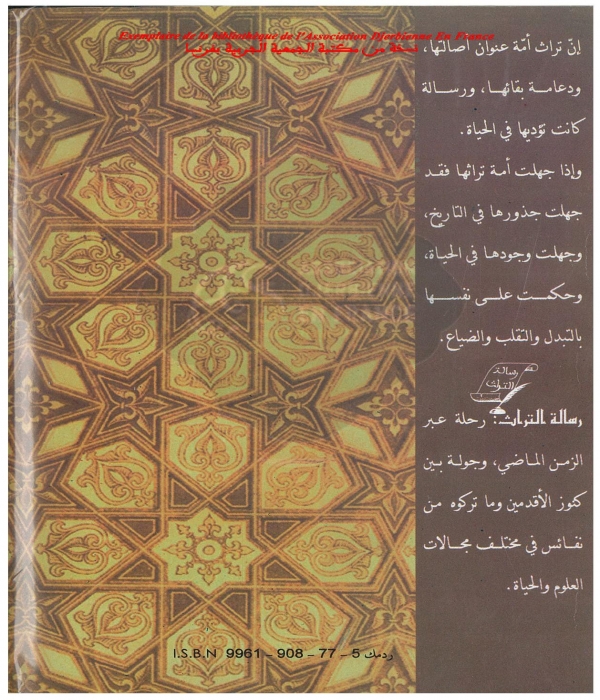 Exemplaire de la bibliothèque de l'Association Djerbienne En France
نسخة من مكتبة الجمعية الجربية بفرنسا
إنّ تراث أمّة عنوان أصالتها،
ودعامـة بقائهـا، ورسـالة
كانت تؤديها في الحياة.
وإذا جهلت أمة تراثها فقـد
جهلت جذورها في التاريخ،
وجهلت وجودها في الحياة،
وحكمـت علـى نفسـها
بالتبدل والتقلب والضياع.
رسالة
التراث
رسالة التراث: رحلة عـبر
الزمـن المـاضي، وجولـة بـين
كنوز الأقدمين وما تركوه مـن
نفـائس في مختلـف مجـالات
العلوم والحياة.
ردمك 5 – 77 – 908 – 9961 I.S.B.N